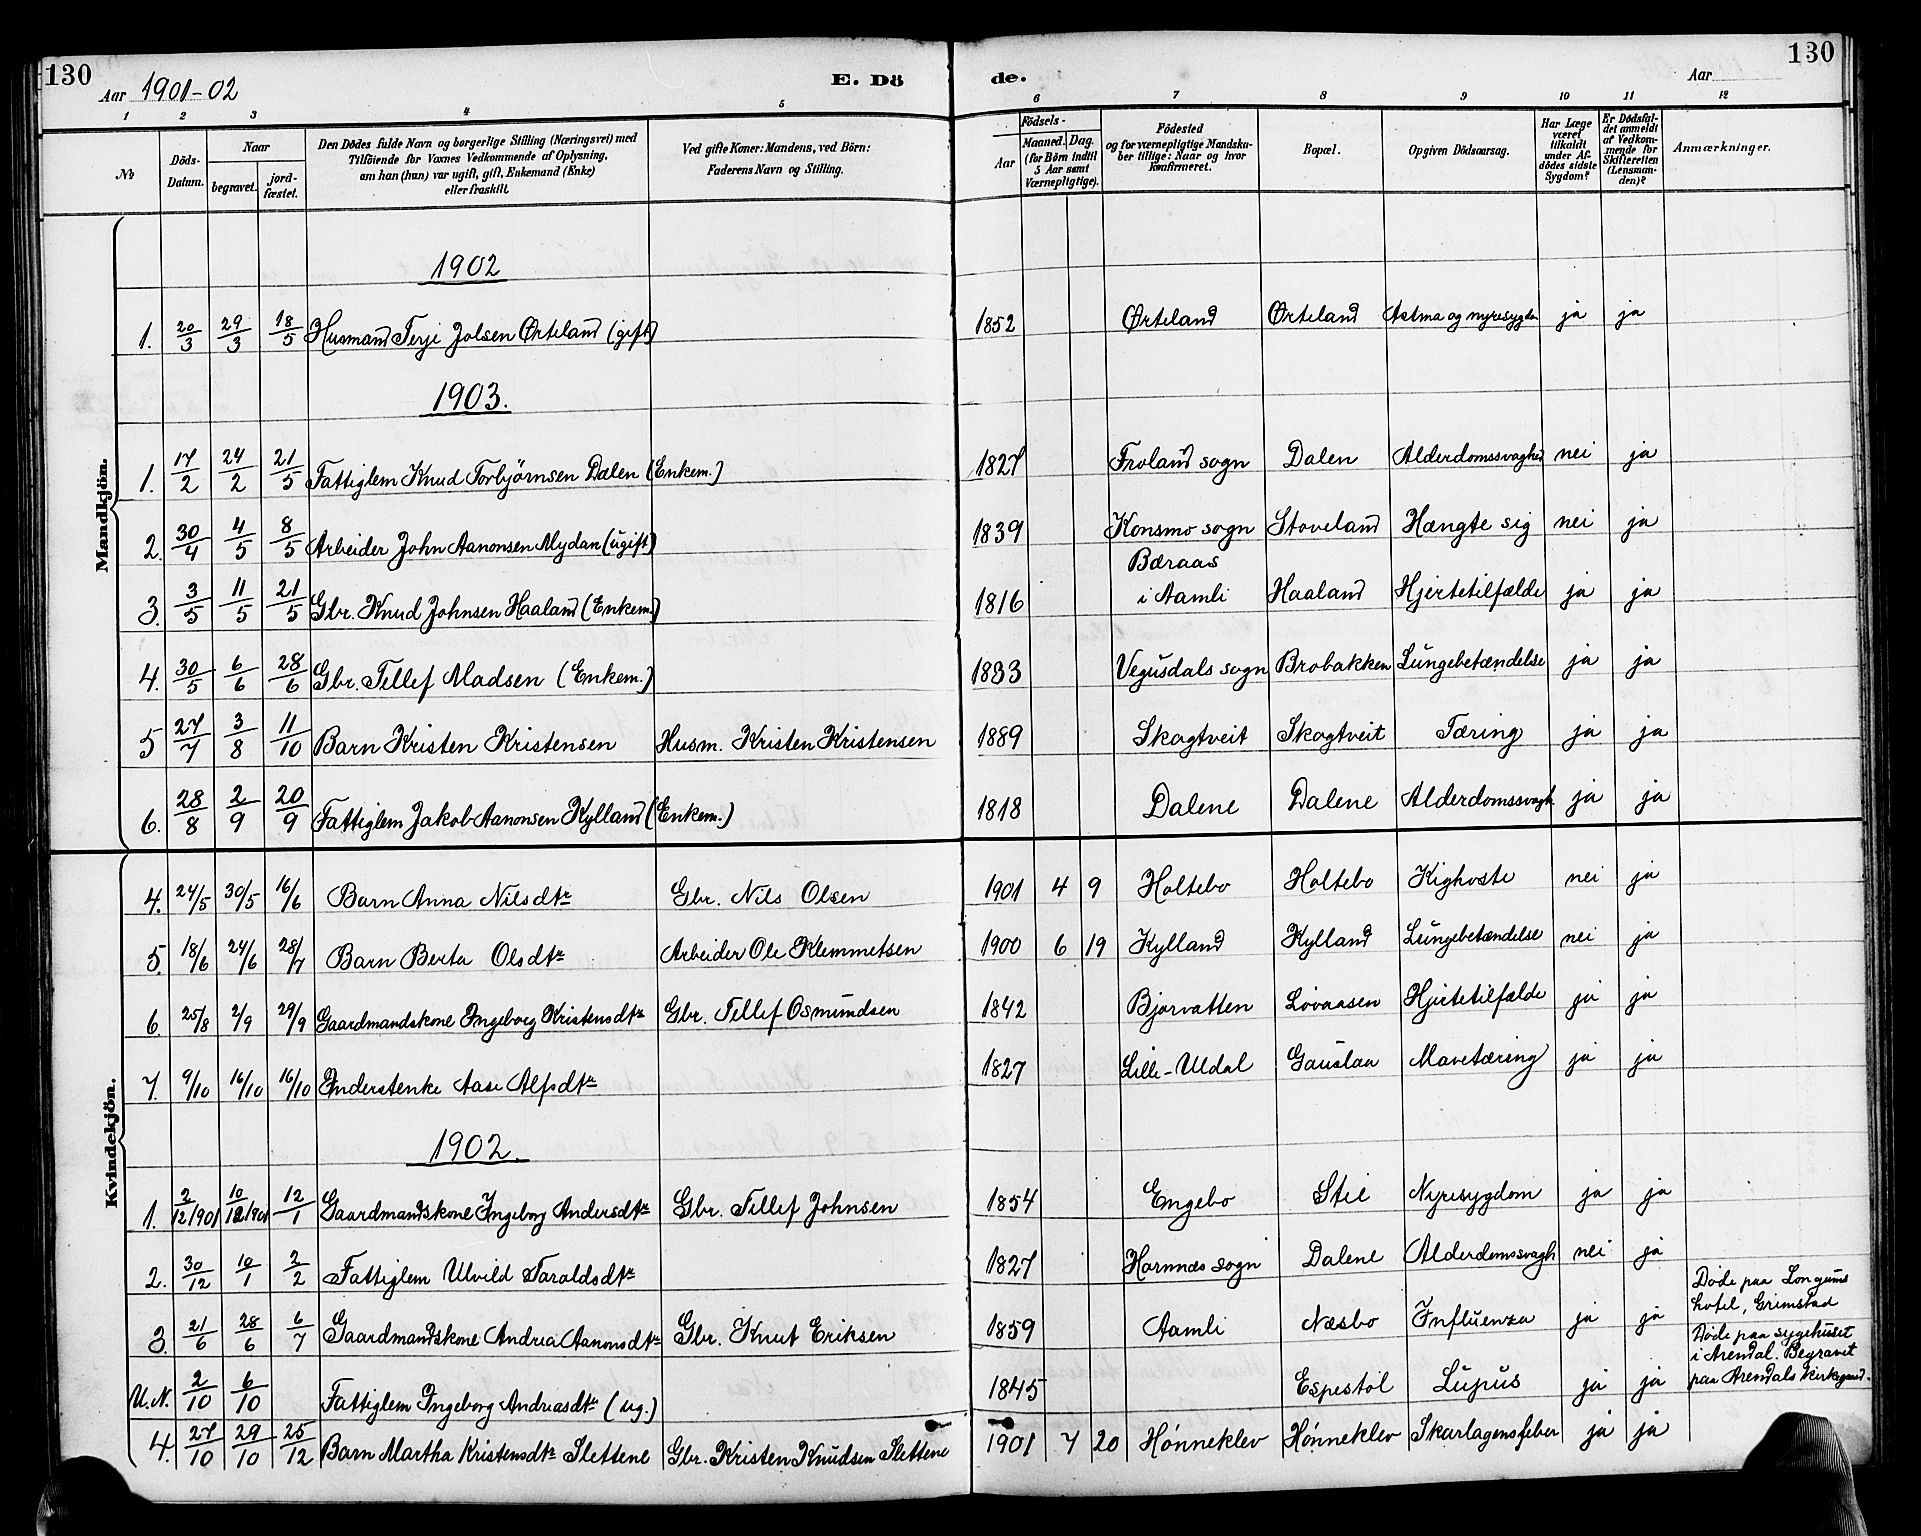 130
Aar 1901-02
E. Dö
de.
Aar
130
1 2 3 4 5 6 7 8 9 10 11 12
No
Döds-Datum.
Naar
begravet.
jord-fæstet.
Den Dödes fulde Navn og borgerlige Stilling (Næringsvei) med
Tilföiende for Voxnes Vedkommende af Oplysning,
om han (hun) var ugift, gift, Enkemand (Enke)
eller fraskilt.
Ved gifte Koner: Mandens, ved Börn:
Faderens Navn og Stilling.
Födsels-
Aar
Maaned. Dag.
(for Börn indtil
5 Aar samt
Værnepligtige).
Födested
og for værnepligtige Mandska-
ber tillige: Naar og hvor
konfirmeret.
Bopæl.
Opgiven Dödsaarsag.
Har Læge
været
tilkaldt
under Af-
dödes sidste
Sygdom?
Er Dödsfal-
det anmeldt
af Vedkom-
mende for
Skifteretten
(Lensman-
den)?
Anmærkninger.
Mandkjön.
1902
1. 20/3 29/3 18/5 Husmand Terje Jolsen Ørteland (gift) 1852 Ørteland Ørteland Astma og nyresygdm ja ja
1903.
1. 17/2 24/2 21/5 Fattiglem Knud Torbjørnsen Dalen (Enkem.) 1827 Froland sogn Dalen Alderdomssvaghed nei ja
2. 30/4 4/5 8/5 Arbeider John Aanonsen Mydan (ugift) 1839 Konsmo sogn Stoveland Hængte sig nei ja
3. 3/5 11/5 21/5 Gbr. Knud Johnsen Haaland (Enkem.) 1816 Bæraas i Aamli Haaland Hjertetilfælde ja ja
4. 30/5 6/6 28/6 Gbr. Tellef Madsen (Enkem.) 1833 Vegusdals sogn Brobakken Lungebetændelse ja ja
5 27/7 3/8 11/10 Barn Kristen Kristensen Husm. Kristen Kristensen 1889 Skogtveit Skogtveit Tæring ja ja
6. 28/8 2/9 20/9 Fattiglem Jakob Aanonsen Kylland (Enkem.) 1818 Dalene Dalene Alderdomssvagh. ja ja
Kvindekjön.
4. 24/5 30/5 16/6 Barn Anna Nilsdtr Gbr. Nils Olsen 1901 4 9 Holtebo Holtebo Kighoste nei ja
5. 18/6 24/6 28/7 Barn Berta Olsdtr Arbeider Ole Klemmetsen 1900 6 19 Kylland Kylland Lungebetændelse nei ja
6 25/8 2/9 29/9 Gaardmandskone Ingeborg Kristensdtr Gbr. Tellef Osmundsen 1842 Bjorvatten Løvaasen Hjertetilfælde ja ja
7. 9/10 16/10 16/10 Inderstenke Aase Alfsdtr 1827 Lille-Uldal Gauslaa Mavetæring ja ja
1902.
1. 2/12 1901 10/12 1901 12/1 Gaardmandskone Ingeborg Andersdtr Gbr. Tellef Johnsen 1854 Engebo Stie Nyresygdom ja ja
2. 30/12 10/1 2/2 Fattiglem Ulvild Taraldsdtr 1827 Hornnes sogn Dalene Alderdomssvagh nei ja
3. 21/6 28/6 6/7 Gaardmandskone Andrea Aanonsdtr Gbr. Knut Eriksen 1859 Aamli Næsbo Influenza ja ja Døde paa Longums hotel, Grimstad
U.N. 2/10 6/10 Fattiglem Ingeborg Andreasdtr (ug.) 1845 Espestøl Lupus ja ja Døde paa sygehuset i Arendal. Begravet paa Arendals kirkegaard.
4. 27/10 29/10 25/12 Barn Martha Kristensdtr Slettene Gbr. Kristen Knudsen Slettene 1901 7 20 Hønneklev Hønneklev Skarlagensfeber ja ja